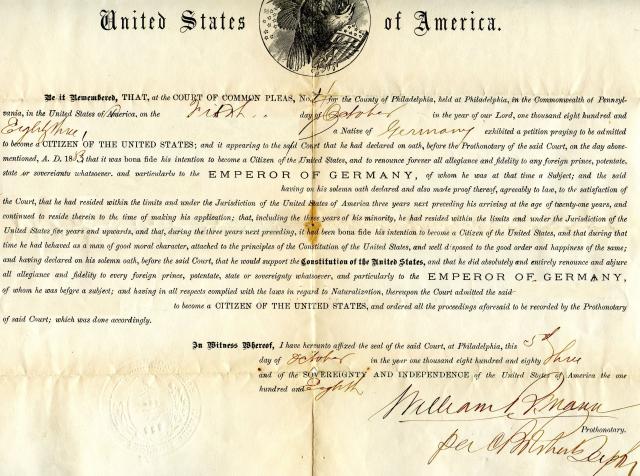 United States of America.
Be it Remembered, THAT, at the COURT OF COMMON PLEAS, No. 4 for the County of Philadelphia, held at Philadelphia, in the Commonwealth of Pennsyl-
vania, in the United States of America, on the First day of October in the year of our Lord, one thousand eight hundred and
Eighty three, a Native of Germany exhibited a petition praying to be admitted
to become a CITIZEN OF THE UNITED STATES; and it appearing to the said Court that he had declared on oath, before the Prothonotary of the said Court, on the day above-
mentioned, A. D. 1883 that it was bona fide his intention to become a Citizen of the United States, and to renounce forever all allegiance and fidelity to any foreign prince, potentate,
state or sovereignty whatsoever, and particularly to the EMPEROR OF GERMANY, of whom he was at that time a Subject; and the said
having on his solemn oath declared and also made proof thereof, agreeably to law, to the satisfaction of
the Court, that he had resided within the limits and under the Jurisdiction of the United States of America three years next preceding his arriving at the age of twenty-one years, and
continued to reside therein to the time of making his application; that, including the three years of his minority, he had resided within the limits and under the Jurisdiction of the
United States five years and upwards, and that, during the three years next preceding, it had been bona fide his intention to become a Citizen of the United States, and that during that
time he had behaved as a man of good moral character, attached to the principles of the Constitution of the United States, and well disposed to the good order and happiness of the same;
and having declared on his solemn oath, before the said Court, that he would support the Constitution of the United States, and that he did absolutely and entirely renounce and abjure
all allegiance and fidelity to every foreign prince, potentate, state or sovereignty whatsoever, and particularly to the EMPEROR OF GERMANY,
of whom he was before a subject; and having in all respects complied with the laws in regard to Naturalization, thereupon the Court admitted the said
to become a CITIZEN OF THE UNITED STATES, and ordered all the proceedings aforesaid to be recorded by the Prothonotary
of said Court; which was done accordingly.
In Witness Whereof, I have hereunto affixed the seal of the said Court, at Philadelphia, this 5th
day of October in the year one thousand eight hundred and eighty three
and of the SOVEREIGNTY AND INDEPENDENCE of the United States of America the one
hundred and Eighth
William B. Mann
Prothonotary.
per